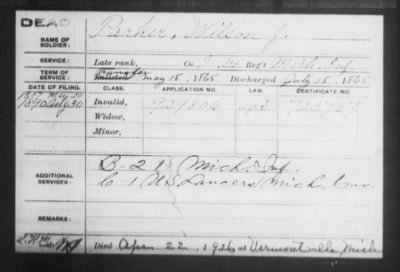 DEAD
NAME OF SOLDIER: Parker, Wilson J.
SERVICE: Late rank, Co. I, 14 Reg't Mich. Inf.
TERM OF SERVICE: Enlisted Transfer May 18, 1865 Discharged July 18, 1865
DATE OF FILING. CLASS. APPLICATION NO. LAW. CERTIFICATE NO.
1890 Aug 30 Invalid, 929806
Widow,
Minor,
ADDITIONAL SERVICES: B-21 Mich. Inf.
C-1 U.S. Lancers Mich. Cav.
REMARKS:
Died Apr. 22, 1926 at Vermontville Mich